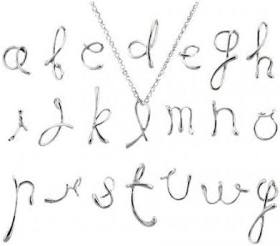 a b c d e g h
i j k l m n o
p r s t u w y